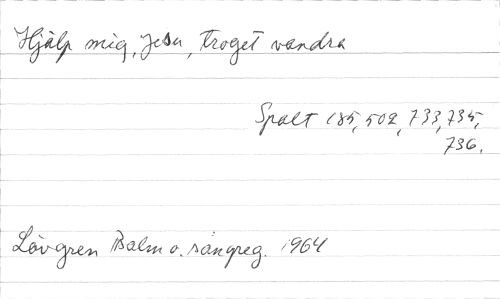 Hjälp mig, Jesu, troget vandra
Spalt 185, 502, 733, 735,
736.
Lövgren Psalm o. sångreg. 1964